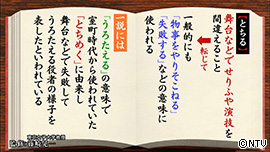 【とちる】
舞台などでせりふや演技を
間違えること
転じて
一般的にも
「物事をやりそこねる」
「失敗する」などの意味に
使われる
一説には
「うろたえる」の意味で
室町時代から使われていた
「とちめく」に由来し
舞台などで失敗して
うろたえる役者の様子を
表したといわれている
©NTV